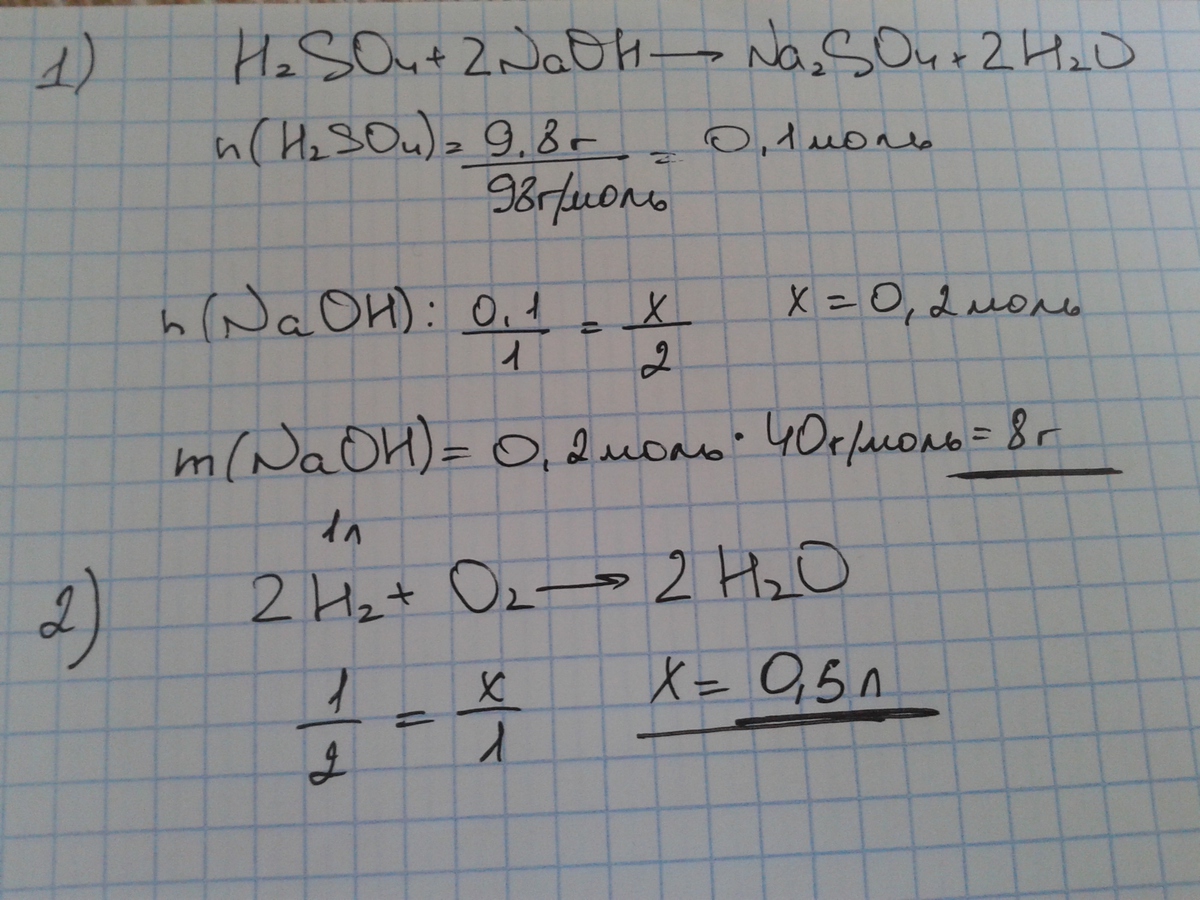 1) H₂SO₄ + 2NaOH → Na₂SO₄ + 2H₂O
n(H₂SO₄) = 9,8г / 98г/моль = 0,1моль
n(NaOH): 0,1/1 = x/2 x = 0,2моль
m(NaOH) = 0,2моль · 40г/моль = 8г
1л
2) 2H₂ + O₂ → 2H₂O
1/2 = x/1 x = 0,5л